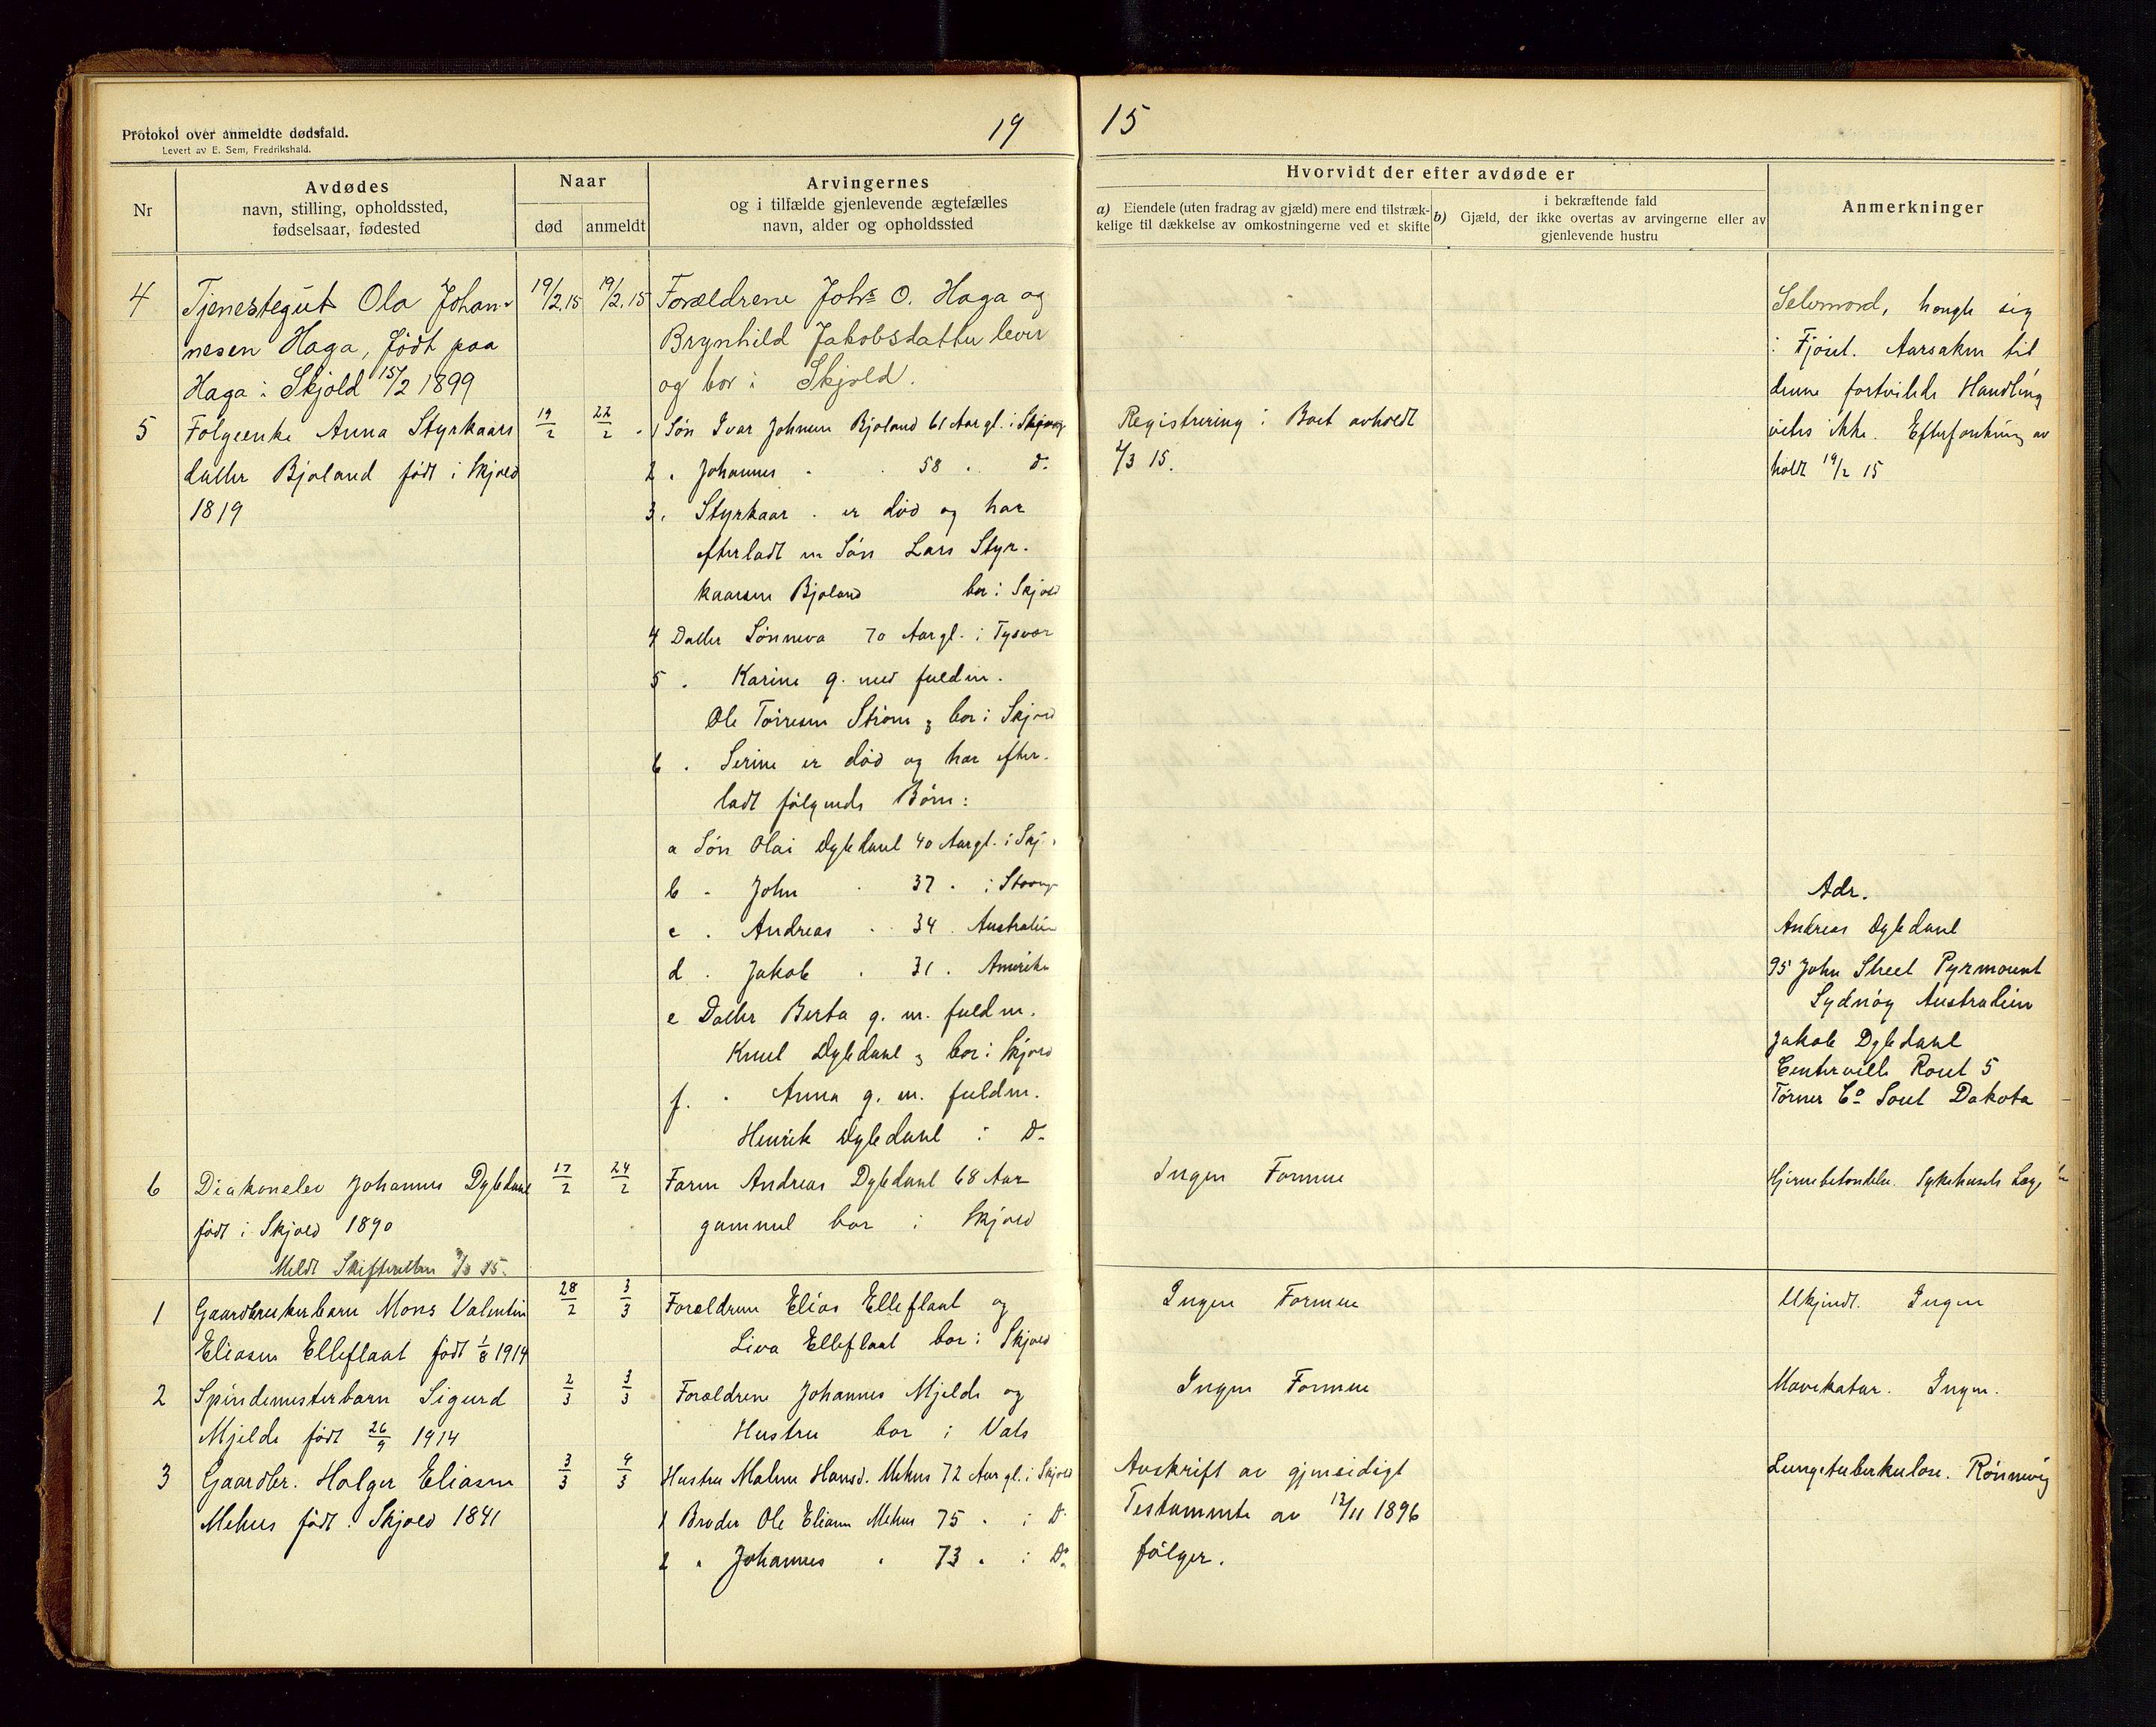 Protokol over anmeldte dødsfald.
Levert av E. Sem, Fredrikshald.
19
15
Nr
Avdødes
navn, stilling, opholdssted,
fødselsaar, fødested
Naar
død
anmeldt
Arvingernes
og i tilfælde gjenlevende ægtefælles
navn, alder og opholdssted
Hvorvidt der efter avdøde er
a) Eiendele (uten fradrag av gjæld) mere end tilstræk-
kelige til dækkelse av omkostningerne ved et skifte
i bekræftende fald
b) Gjæld, der ikke overtas av arvingerne eller av
gjenlevende hustru
Anmerkninger
4
Tjenestegut Ola Johan-
nesen Haga, født paa
Haga i Skjold 15/2 1899
19/2.15
19/2.15
Forældrene Johs O. Haga og
Brynhild Jakobsdatter lever
og bor i Skjold.
Selvmord, hengte sig
i Fjøset. Aarsaken til
denne fortvilede Handling
vites ikke. Efterforskning av
holdt 19/2 15
5
Følgeenke Anna Styrkaars
datter Bjoland født i Skjold
1819
19/2
22/2
1 Søn Ivar Johnsen Bjoland 61 Aar gl. i
2 . Johannes . . 58 . Do
3. Styrkaar . er død og har
efterladt en Søn Lars Styr.
kaarsen Bjoland bor i Skjold
4 Datter Sønneva 70 Aar gl. i Tysvær
5 . Karine g. med fuldm.
Ole Tørresen Strøm, bor i Skjold
6 . Serine er død og har efter.
ladt følgende Børn:
a Søn Olai Dybdahl 40 Aar gl. i Skj.
b . John . 37 . i Stavang
c . Andreas . 34 . Australien
d . Jakob . 31 . Amerika
e Datter Berta g. m. fuldm.
Knut Dybdahl, bor i Skjold
f. . Anna g. m. fuldm.
Henrik Dybdahl i Do
Registrering i Boet avholdt
2/3 15.
Adr.
Andreas Dybdahl
95 John Street Pyrmount
Sydnøy Australien
Jakob Dybdahl
Centerville Rout 5
Tørner Co Sout Dakota
6
Diakonelev Johannes Dybdahl
født i Skjold 1890
Meldt Skifteretten 3/3 15.
17/2
24/2
Faren Andreas Dybdahl 68 Aar
gammel bor i Skjold
Ingen Formue
Hjernebetændelse. Sykehusets Læge
1
Gaardbrukerbarn Mons Valentin
Eliasen Elleflaat født 1/8 1914
28/2
3/3
Forældrene Elias Elleflaat og
Liva Elleflaat bor i Skjold
Ingen Formue
Ukjendt. Ingen
2
Spindemesterbarn Sigurd
Mjelde født 26/9 1914
2/3
3/3
Forældrene Johannes Mjelde og
Hustru bor i Vats
Ingen Formue
Mavekatar. Ingen.
3
Gaardbr. Holger Eliasen
Mehus født i Skjold 1841
3/3
4/3
Hustru Malene Hansd. Mehus 72 Aar gl. i Skjold
1 Broder Ole Eliasen Mehus 75 . i Do
2 " Johannes . 73 . i Do
Avskrift av gjensidigt
Testamente av 12/11 1896
følger.
Lungetuberkulose. Rønnevig